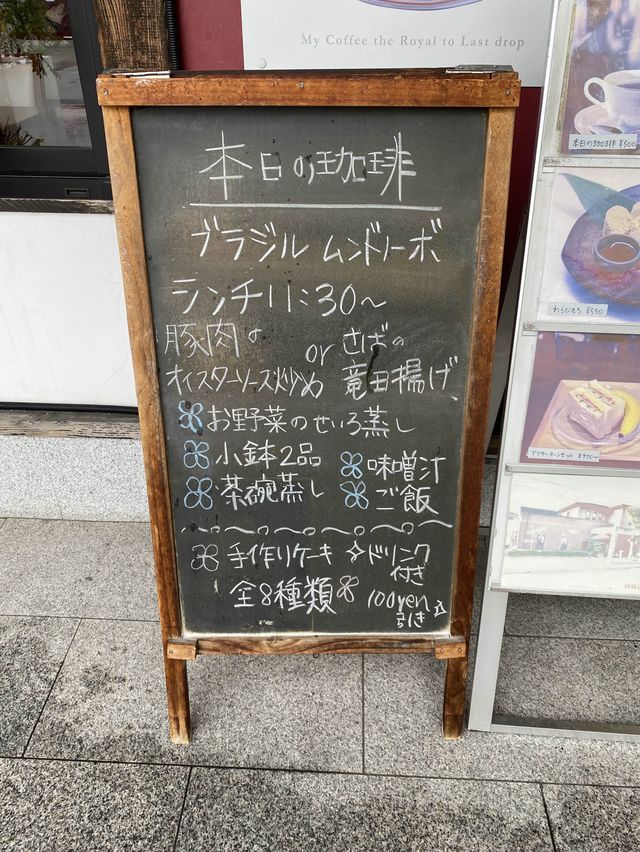 My Coffee the Royal to Last drop
本日の珈琲
ブラジル ムンドノーボ
ランチ11:30〜
豚肉の
オイスターソース炒め
or
さばの
竜田揚げ
お野菜のせいろ蒸し
小鉢2品
味噌汁
茶碗蒸し
ご飯
手作りケーキ
全8種類
ドリンク
付き
100yen
引き
本日の珈琲 ¥500
わらびもち ¥550